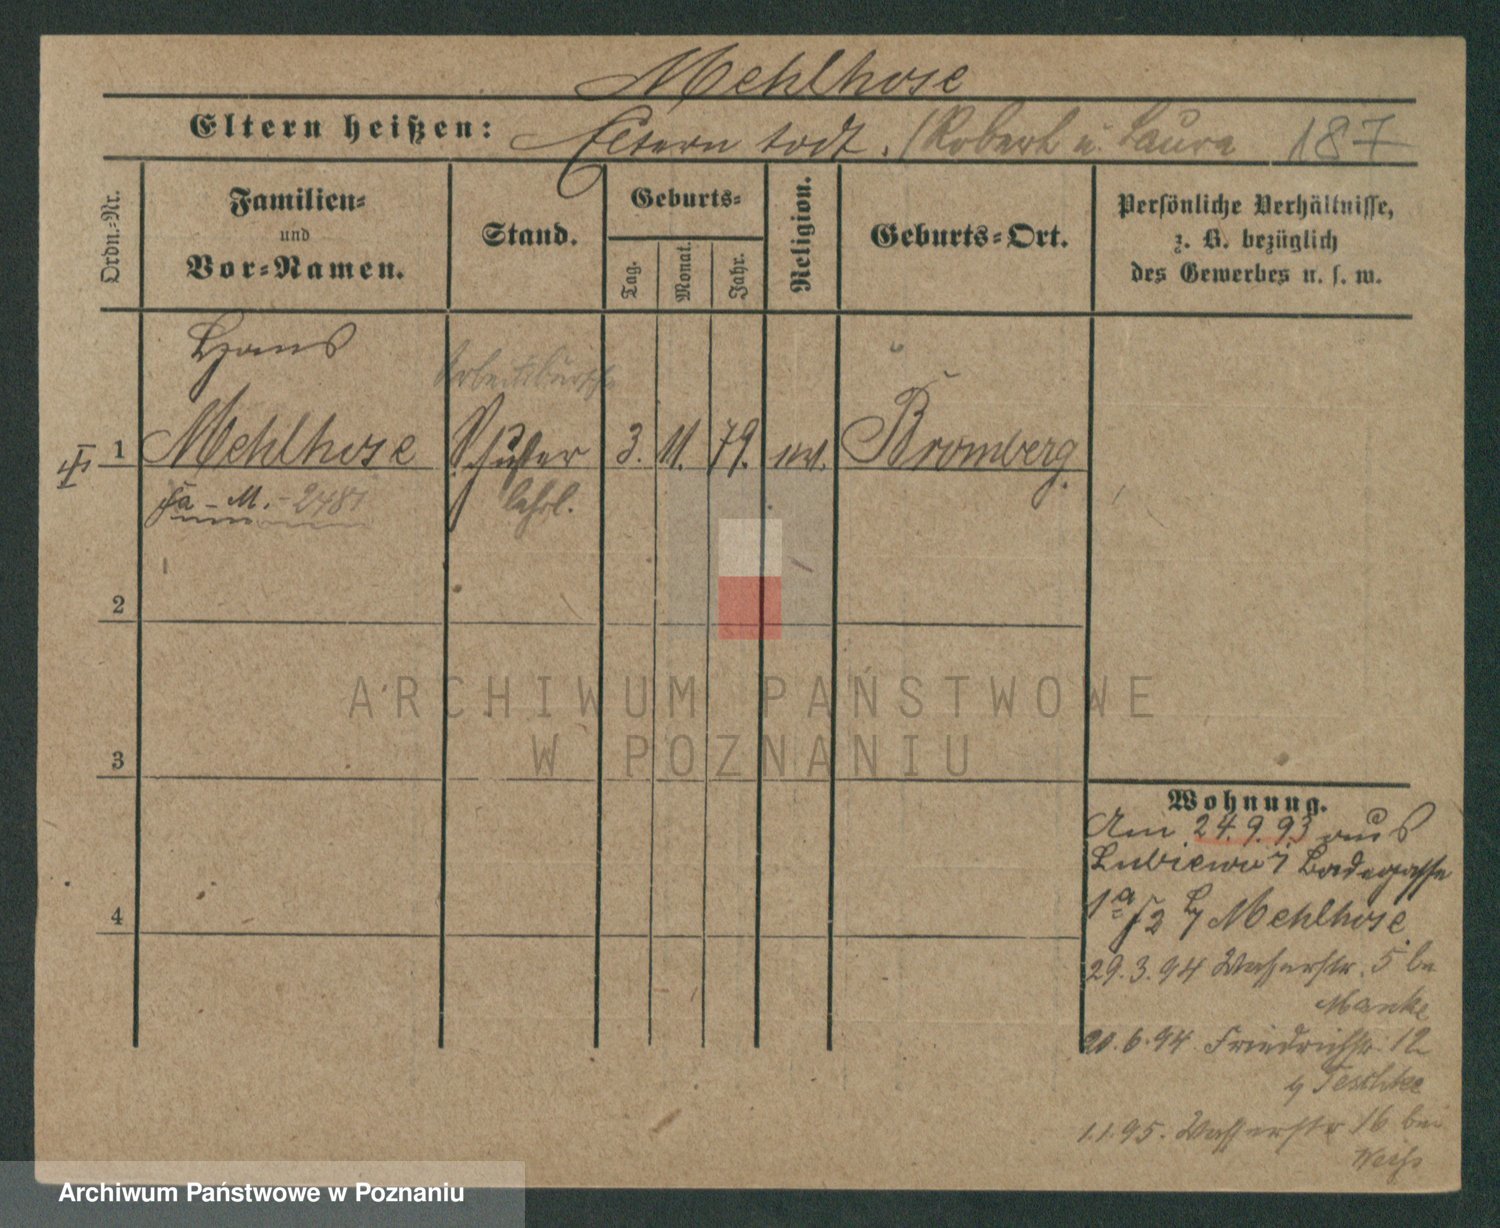 Mehlhose
Eltern heißen: Eltern todt. (Robert u. Laura 187
Ordn.-Nr.
Familien-
und
Vor-Namen.
Stand.
Geburts-
Tag.
Monat.
Jahr.
Religion.
Geburts-Ort.
Persönliche Verhältnisse,
z. B. bezüglich
des Gewerbes u. s. w.
Hans
Arbeitsbursche
1 Mehlhose Schuster 3. 11. 79. ev. Bromberg.
Fa - M. - 2481 lehrl.
2
3
4
Wohnung.
Am 24.9.93 aus
Badegasse
1a Mehlhose.
29.3.94 Wasserstr. 5 bei
Manke
20.6.94 Friedrichstr. 12
1.1.95. Wasserstr 16 bei
Weiss
ARCHIWUM PAŃSTWOWE
W POZNANIU
Archiwum Państwowe w Poznaniu